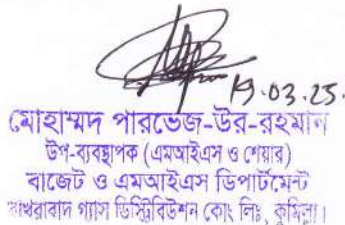 19.03.25.
মোহাম্মদ পারভেজ-উর-রহমান
উপ-ব্যবস্থাপক (এমআইএস ও শেয়ার)
বাজেট ও এমআইএস ডিপার্টমেন্ট
বাখরাবাদ গ্যাস ডিস্ট্রিবিউশন কোং লিঃ, কুমিল্লা।